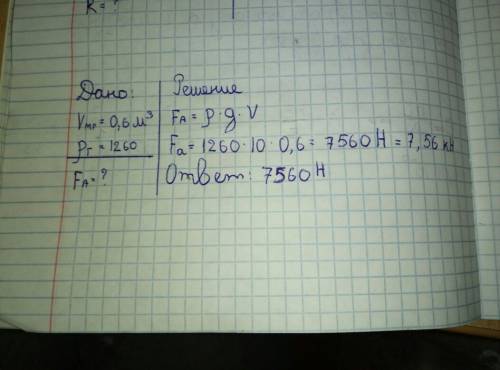 R = ?
Дано:
Vтл = 0,6 м³
ρг = 1260
FA = ?
Решение
FA = ρ · g · V
Fa = 1260 · 10 · 0,6 = 7560 Н = 7,56 кН
Ответ: 7560 Н